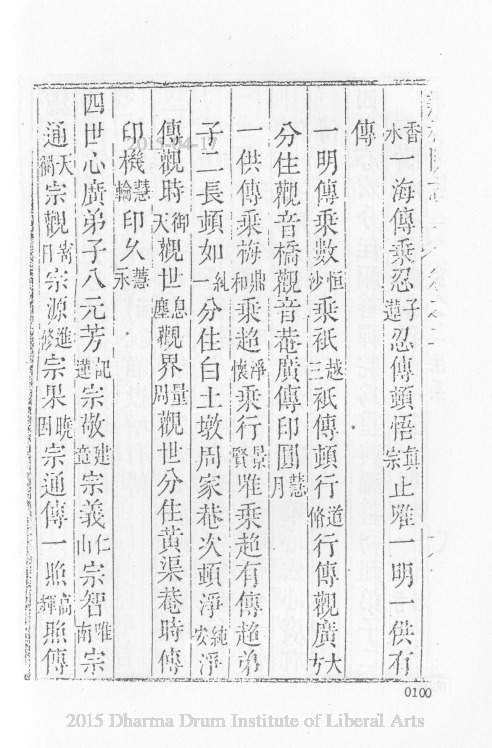 香水一海傳乘忍子蓮忍傳頓悟真宗止唯一明一供有
傳
一明傳乘數恒沙乘祇越三祇傳頓行道脩行傳觀廣大方
分住觀音橋觀音菴廣傳印圓慧月
一供傳乘梅鼎和乘超淨懷乘行景賢唯乘超有傳超弟
子二長頓如一分住白土墩周家巷次頓淨純安淨
傳觀時御天觀世息塵觀界量周觀世分住黃渠菴時傳
印機慧輪印久慧永
四世心廣弟子八元芳記蓮宗敬建章宗義仁山宗智唯南宗
通天宗觀宗源進修宗果曉因宗通傳一照高輝照傳
0100
2015-04-17
2015 Dharma Drum Institute of Liberal Arts